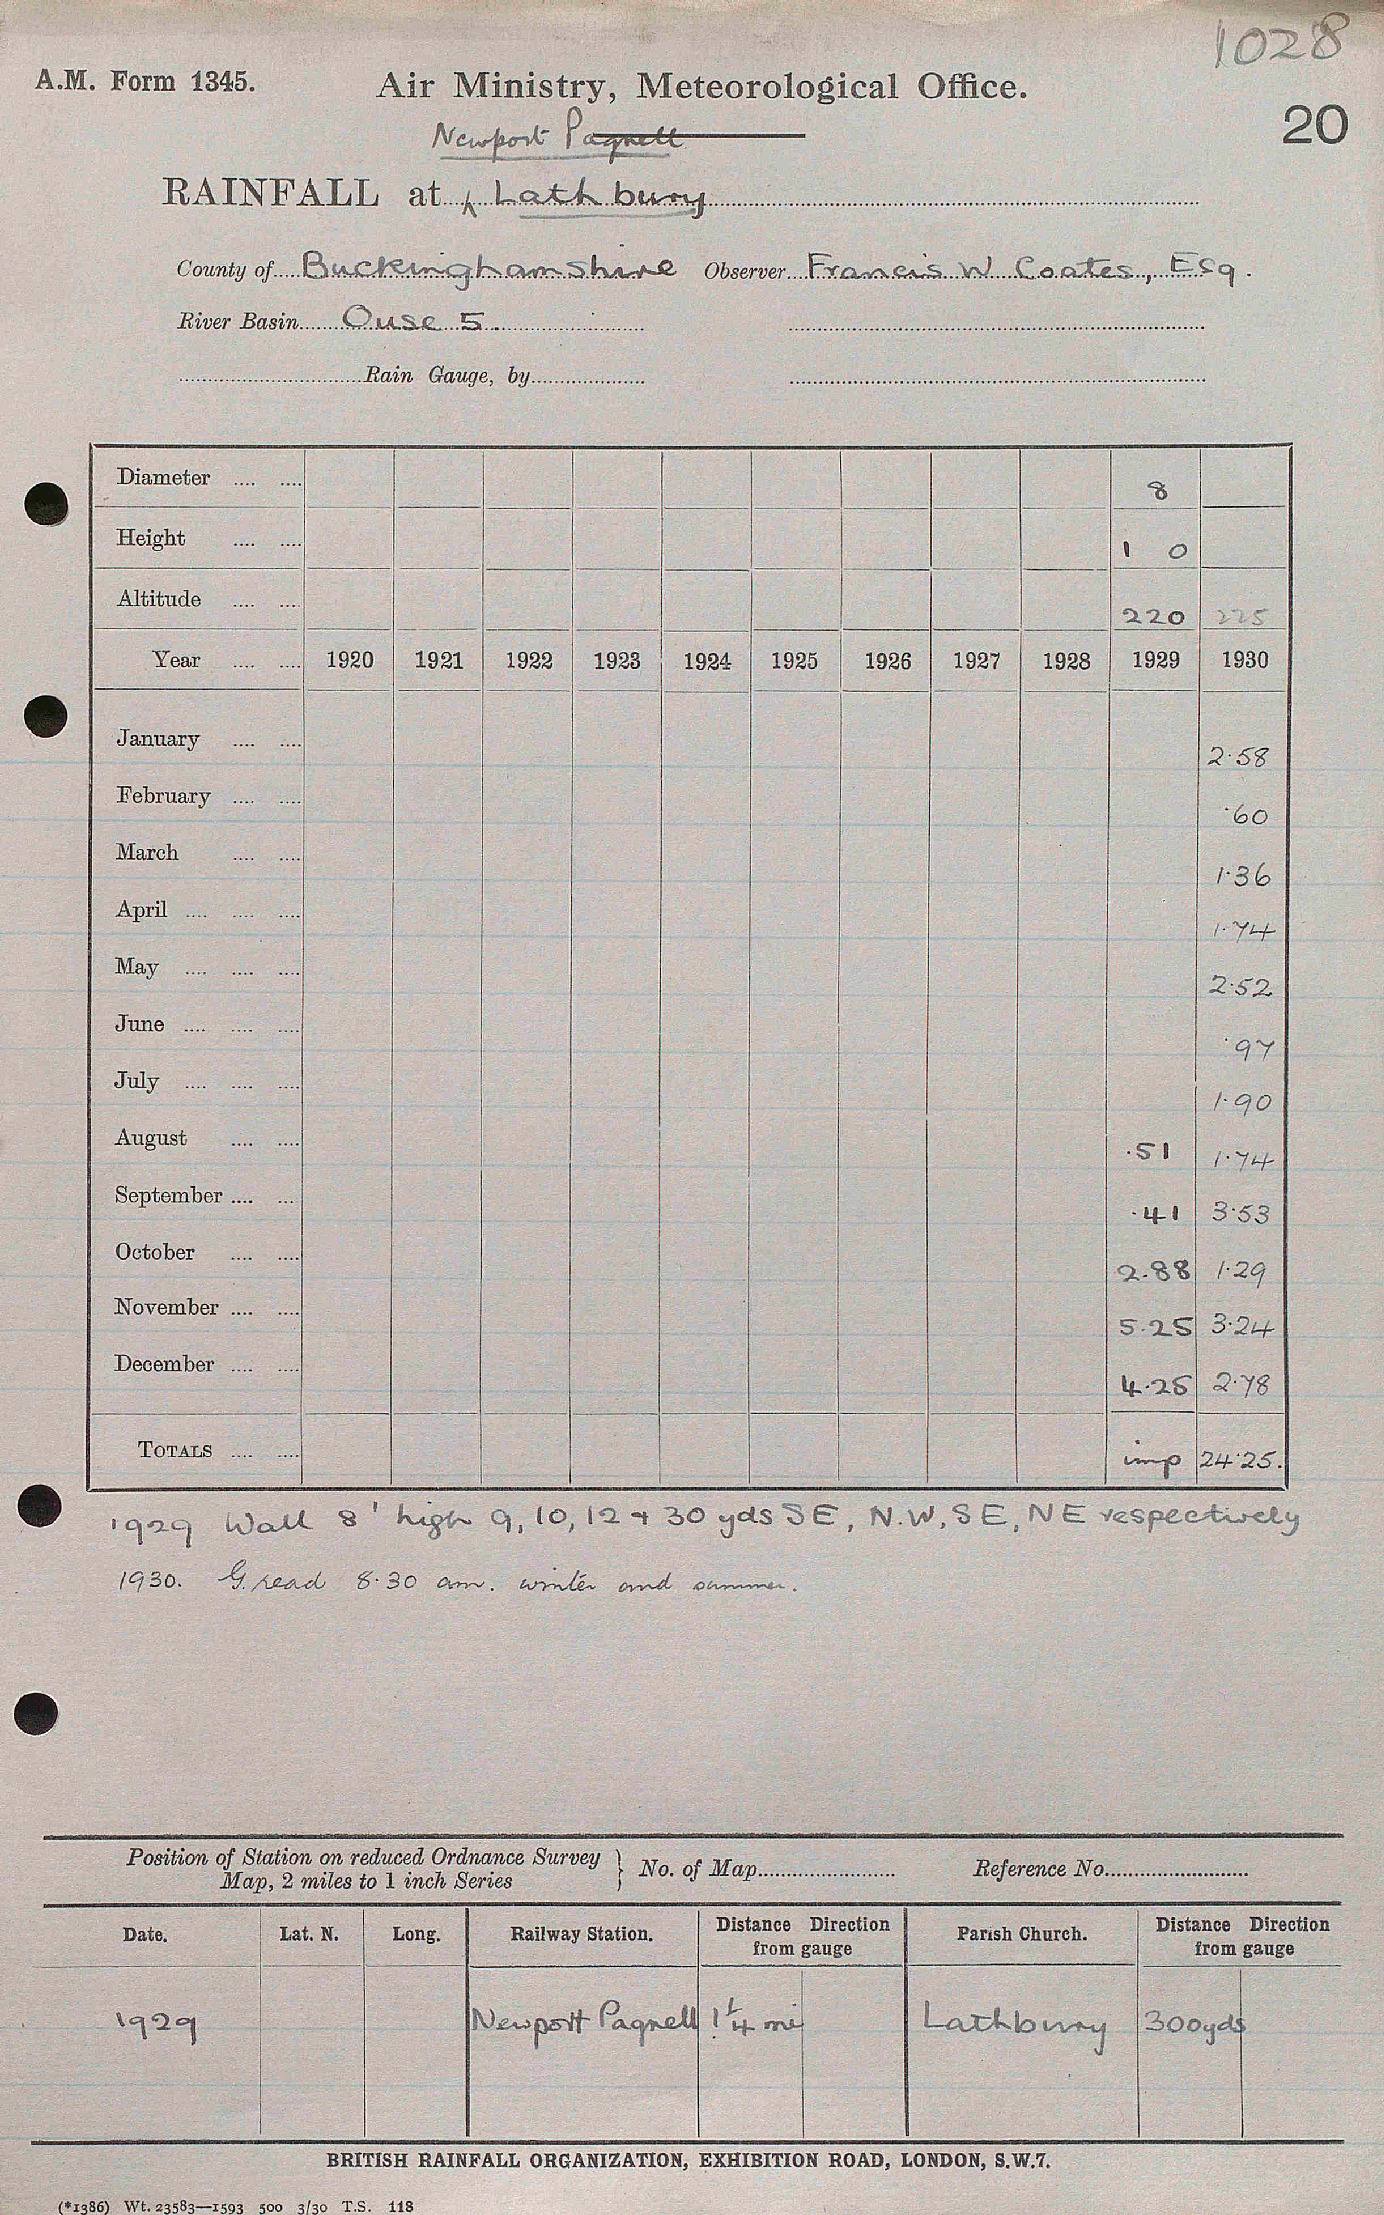 1028
A.M. Form 1345.
Air Ministry, Meteorological Office.
20
Newport Pagnell
RAINFALL at Lathbury
County of Buckinghamshire Observer Francis W Coates, Esq.
River Basin Ouse 5.
Rain Gauge, by
Diameter .... .... 8
Height .... .... 1 0
Altitude .... .... 220 225
Year .... .... 1920 1921 1922 1923 1924 1925 1926 1927 1928 1929 1930
January .... .... 2·58
February .... .... ·60
March .... .... 1·36
April .... .... .... 1·74
May .... .... .... 2·52
June .... .... .... ·97
July .... .... .... 1·90
August .... .... ·51 1·74
September .... .... ·41 3·53
October .... .... 2·88 1·29
November .... .... 5·25 3·24
December .... .... 4·25 2·78
TOTALS .... .... imp 24·25.
1929 Wall 8' high 9, 10, 12 + 30 yds SE, N.W, SE, NE respectively
1930. G. read 8·30 am. winter and summer.
Position of Station on reduced Ordnance Survey
Map, 2 miles to 1 inch Series } No. of Map Reference No.
Date. Lat. N. Long. Railway Station. Distance Direction from gauge Parish Church. Distance Direction from gauge
1929 Newport Pagnell 1¼ mi Lathbury 300yds
BRITISH RAINFALL ORGANIZATION, EXHIBITION ROAD, LONDON, S.W.7.
(*1386) Wt. 23583—1593 500 3/30 T.S. 118